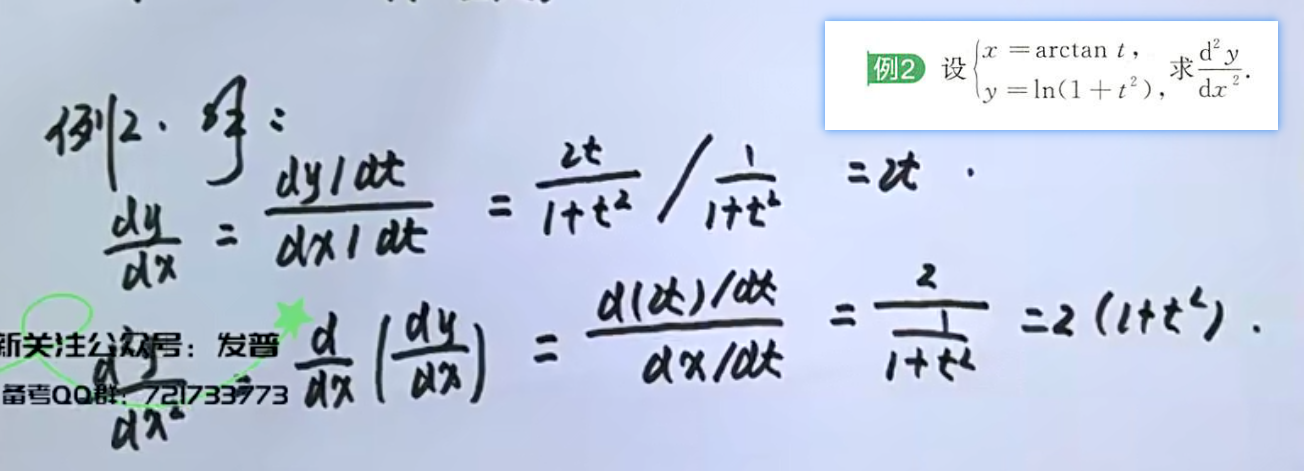 例2 设 { x = arctan t, y = ln(1+t²), 求 d²y/dx².
例2. 解:
dy/dx = (dy/dt)/(dx/dt) = 2t/(1+t²) / 1/(1+t²) = 2t.
d²y/dx² = d/dx (dy/dx) = (d(2t)/dt)/(dx/dt) = 2/(1/(1+t²)) = 2(1+t²).
新关注公众号：发普
备考QQ群：721733773